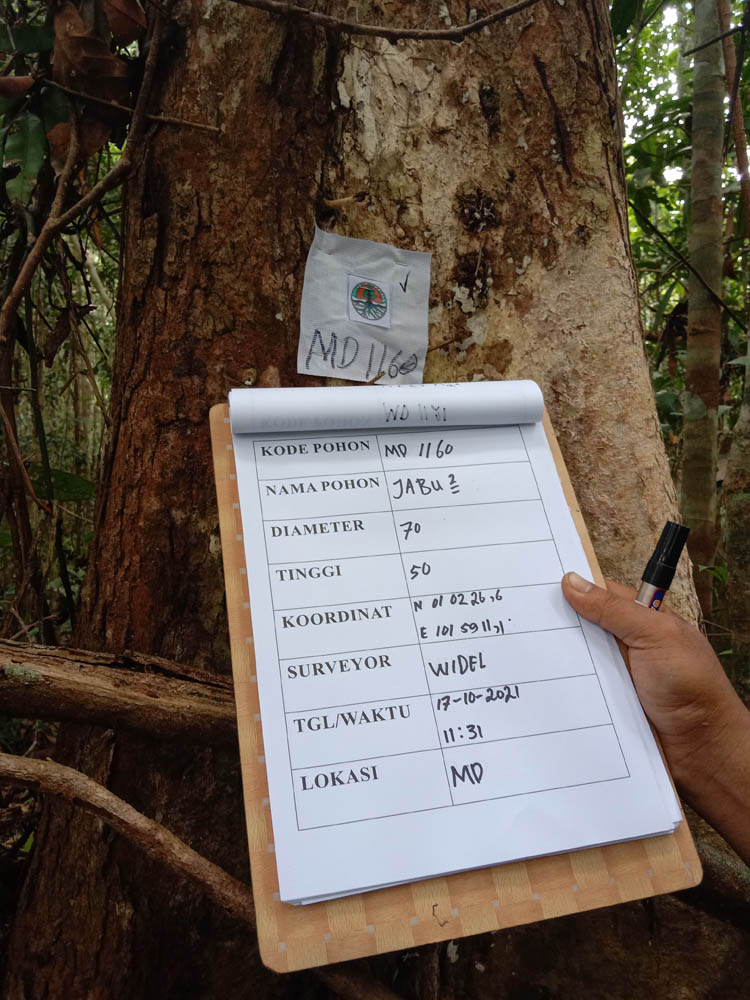 MD 1160
WD 1171
KODE POHON MD 1160
NAMA POHON JABU2
DIAMETER 70
TINGGI 50
KOORDINAT N 01 02 26,6
E 101 59 11,1
SURVEYOR WIDEL
TGL/WAKTU 17-10-2021
11:31
LOKASI MD